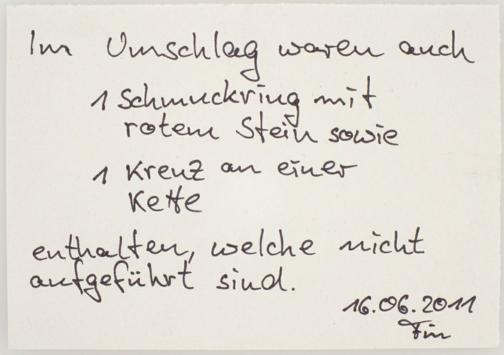 Im Umschlag waren auch
1 Schmuckring mit
rotem Stein sowie
1 Kreuz an einer
Kette
enthalten, welche nicht
aufgeführt sind.
16.06.2011